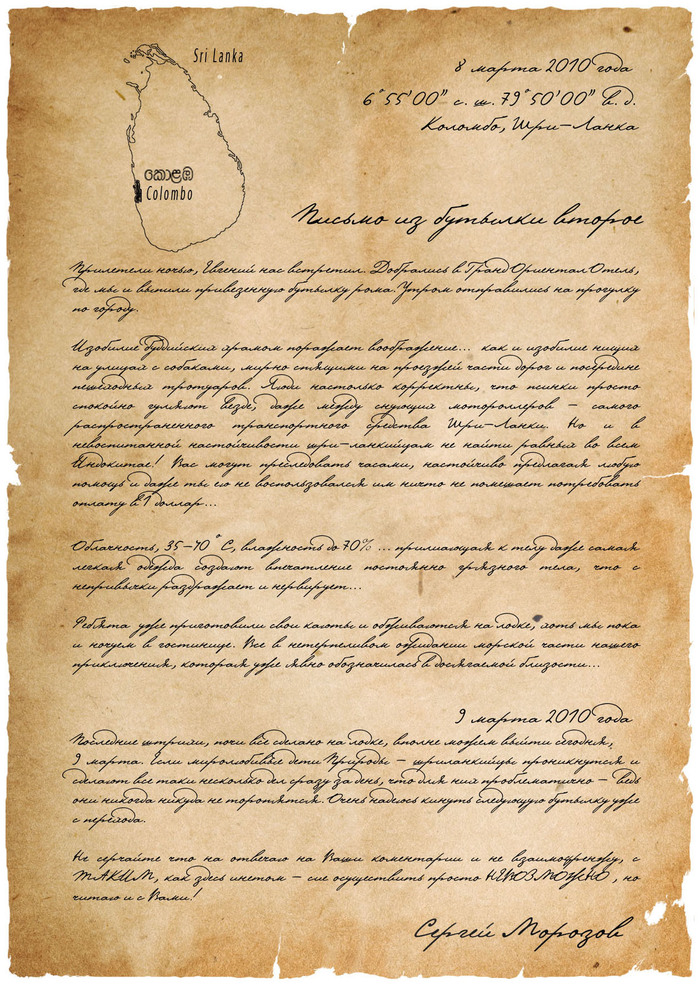 Sri Lanka
8 марта 2010 года
6°55'00" с. ш. 79°50'00" в. д.
Коломбо, Шри-Ланка
කොළඹ
Colombo
Письмо из бутылки второе
Прилетели ночью, Евгений нас встретил. Добрались в Гранд Ориентал Отель,
где мы и выпили привезенную бутылку рома. Утром отправились на прогулку
по городу.
Изобилие буддийских храмом поражает воображение... как и изобилие нищих
на улицах с собаками, мирно спящими на проезжей части дорог и посередине
пешеходных тротуаров. Люди настолько корректны, что псинки просто
спокойно гуляют везде, даже между снующих мотороллеров – самого
распространенного транспортного средства Шри-Ланки. Но и в
невоспитанной настойчивости шри-ланкийцам не найти равных во всем
Индокитае! Вас могут преследовать часами, настойчиво предлагая любую
помощь и даже ты ею не воспользовался им ничто не помешает потребовать
оплату в 1 доллар...
Облачность, 35-40° С, влажность до 70% ... прилипающая к телу даже самая
легкая одежда создают впечатление постоянно грязного тела, что с
непривычки раздражает и нервирует...
Ребята уже приготовили свои каюты и обживаются на лодке, хоть мы пока
и ночуем в гостинице. Все в нетерпеливом ожидании морской части нашего
приключения, которая уже явно обозначилась в досягаемой близости...
9 марта 2010 года
Последние штрихи, почи всё сделано на лодке, вполне можем выйти сегодня,
9 марта. Если миролюбивые дети Природы – шриланкийцы проникнутся и
сделают все таки несколько дел сразу за день, что для них проблематично – ведь
они никогда никуда не торопятся. Очень надеюсь кинуть следующую бутылку уже
с перехода.
Не серчайте что на отвечаю на Ваши коментарии и не взаимофренжу, с
ТАКИМ, как здесь инетом – сие осуществить просто НЕВОЗМОЖНО, но
читаю и с Вами!
Сергей Морозов